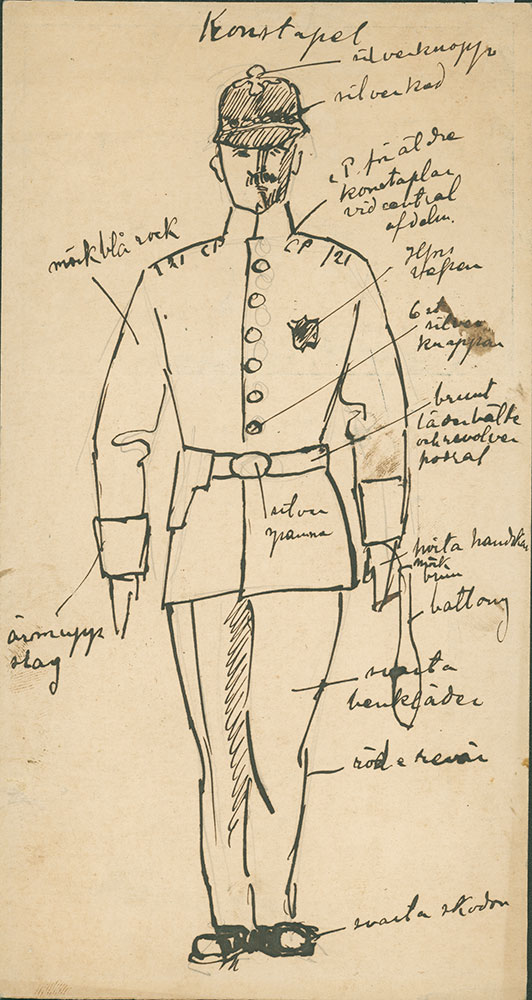 Konstapel
silverknopp
silverked
C.P. för äldre
konstaplar
vid central
afdeln.
mörkblå rock
121 CP
CP 121
Hfrs
6 st
silver
knappar
brunt
läderbälte
och revolver
silver
spänne
hvita handskar
mörk
brun
battong
ärmupp
slag
svarta
benkläder
röd revär
svarta skodon